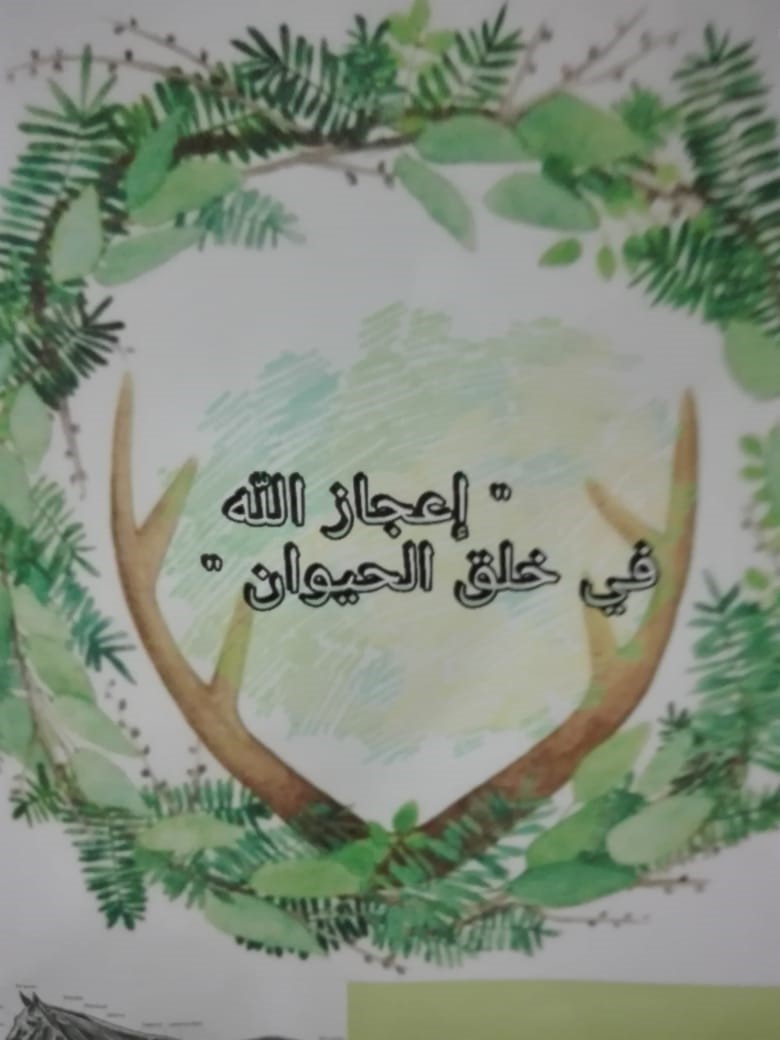 " إعجاز الله
في خلق الحيوان "